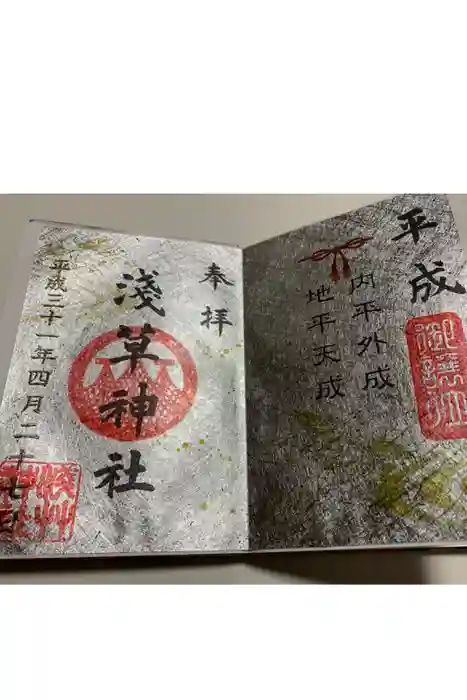 平成
内平外成
地平天成
奉拝
淺草神社
平成三十一年四月二十七日